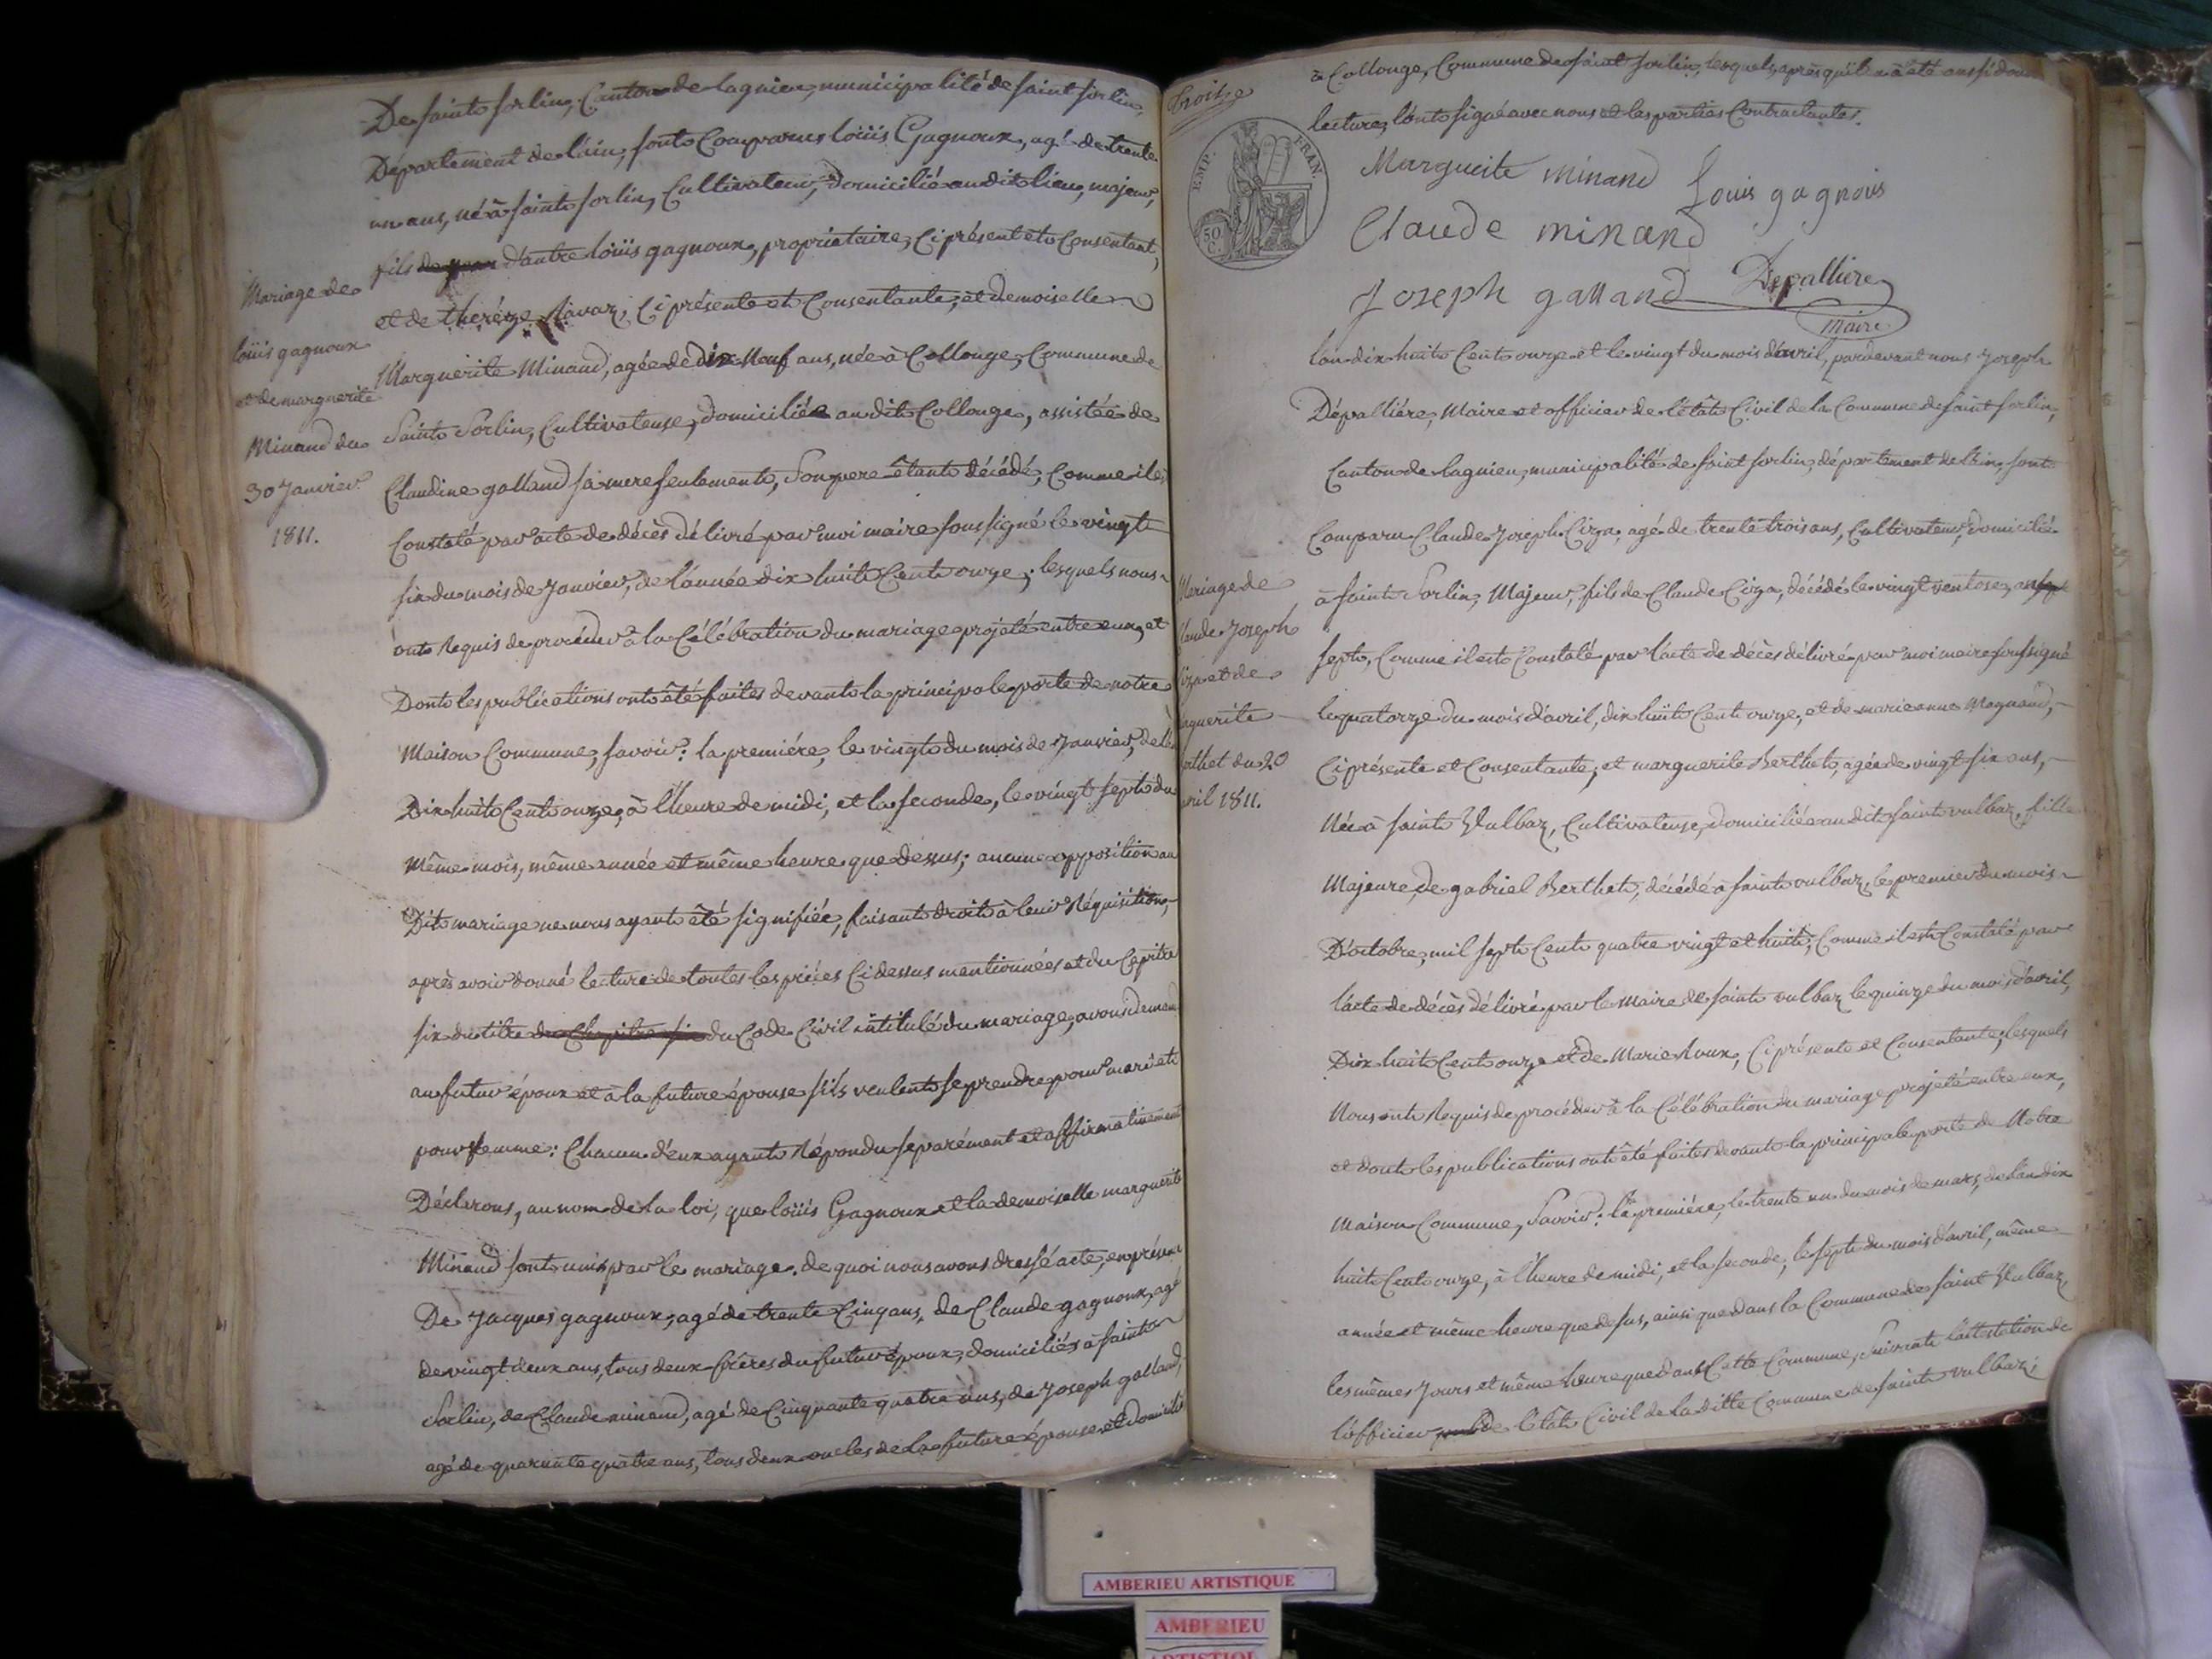 De saint sorlin, Canton de lagnieu, municipalité de saint sorlin,
Département de l'ain, sont Comparus loüis Gagnoux, agé de trente
un ans, né à saint sorlin, Cultivateur, domicilié audit lieu, majeur,
fils d'autre loüis gagnoux, propriétaire, Ci présent et Consentant,
et de théréze Navaz, Ci présente et Consentante; et demoiselle
Marguerite Minand, agée de dix Neuf ans, née à Collonge, Commune de
Saint Sorlin, Cultivateuse, domiciliée audit Collonge, assistée de
Claudine galland sa mere seulement, Son pere êtant décédé, Comme il est
Constaté par acte de décès délivré par moi maire soussigné le vingt
six du mois de Janvier, de l'année dix huit Cent onze; lesquels nous
ont Requis de procéder à la Célébration du mariage projeté entre eux, et
Dont les publications ont êté faites devant la principale porte de notre
Maison Commune, savoir: la premiére, le vingt du mois de Janvier, de l'an
Dix huit Cent onze, à l'heure de midi, et la seconde, le vingt sept du
même mois, même année et même heure que dessus; aucune opposition au
Dit mariage ne nous ayant êté signifiée, faisant droit à leur Réquisition,
après avoir donné lecture de toutes les piéces Ci dessus mentionnées et du Chapitre
six du titre du Chapitre six du Code Civil intitulé du mariage, avons demandé
au futur époux et à la future épouse s'ils veulent se prendre pour mari et
pour femme: Chacun d'eux ayant Répondu separément et affirmativement
Déclarons, au nom de la loi, que loüis Gagnoux et la demoiselle marguerite
Minand sont unis par le mariage. de quoi nous avons dressé acte, en présence
De Jacques gagnoux, agé de trente Cinq ans, de Claude gagnoux, agé
de vingt deux ans, tous deux fréres du futur époux, domiciliés à saint
Sorlin, de Claude minand, agé de Cinquante quatre ans, de Joseph galland,
agé de quarante quatre ans, tous deux oncles de la future épouse et domiciliés
Mariage de
loüis gagnoux
et de marguerite
Minand du
30 Janvier
1811.
Troize
EMP. FRAN.
50 C.
à Collonge, Commune de saint sorlin, lesquels, après qu'il en a été aussi donné
lecture, l'ont signé avec nous et les parties Contractantes.
Marguerite minand
Louis gagnois
Claude minand
Joseph galland
Depalliere
Maire
l'an dix huit Cent onze et le vingt du mois d'avril, pardevant nous Joseph
Dépalliére, Maire et officier de l'état Civil de la Commune de saint sorlin,
Canton de lagnieu, municipalité de saint sorlin, département de l'ain, sont
Comparu Claude Joseph Ciza, agé de trente trois ans, Cultivateur, domicilié
à saint Sorlin, Majeur, fils de Claude Ciza, décédé le vingt ventose, an
sept, Comme il est Constaté par l'acte de décès délivré par moi maire soussigné
le quatorze du mois d'avril, dix huit Cent onze, et de marie anne Magnand,
Ci présente et Consentante, et marguerite Berthet, agée de vingt six ans,
Née à saint Vulbaz, Cultivateuse, domiciliée audit saint vulbaz, fille
Majeure, de gabriel Berthet, décédé à saint vulbaz, le premier du mois
D'octobre, mil sept Cent quatre vingt et huit, Comme il est Constaté par
l'acte de décès délivré par le Maire de saint vulbaz le quinze du mois d'avril,
Dix huit Cent onze et de Marie Roux, Ci présente et Consentante, lesquels
Nous ont Requis de procéder à la Célébration du mariage projeté entre eux,
et dont les publications ont êté faites devant la principale porte de Notre
Maison Commune, Savoir: la premiére, le trente un du mois de mars, de l'an dix
huit Cent onze, à l'heure de midi, et la seconde, le sept du mois d'avril, même
année et même heure que dessus, ainsi que dans la Commune de saint Vulbaz,
les mêmes Jours et même heure que dans Cette Commune, Suivant l'attestation de
l'officier de l'êtat Civil de la ditte Commune de saint vulbaz;
Mariage de
laude Joseph
iza et de
rguerite
erthet du 20
avril 1811.
AMBERIEU ARTISTIQUE
AMBERIEU
ARTISTIQUE